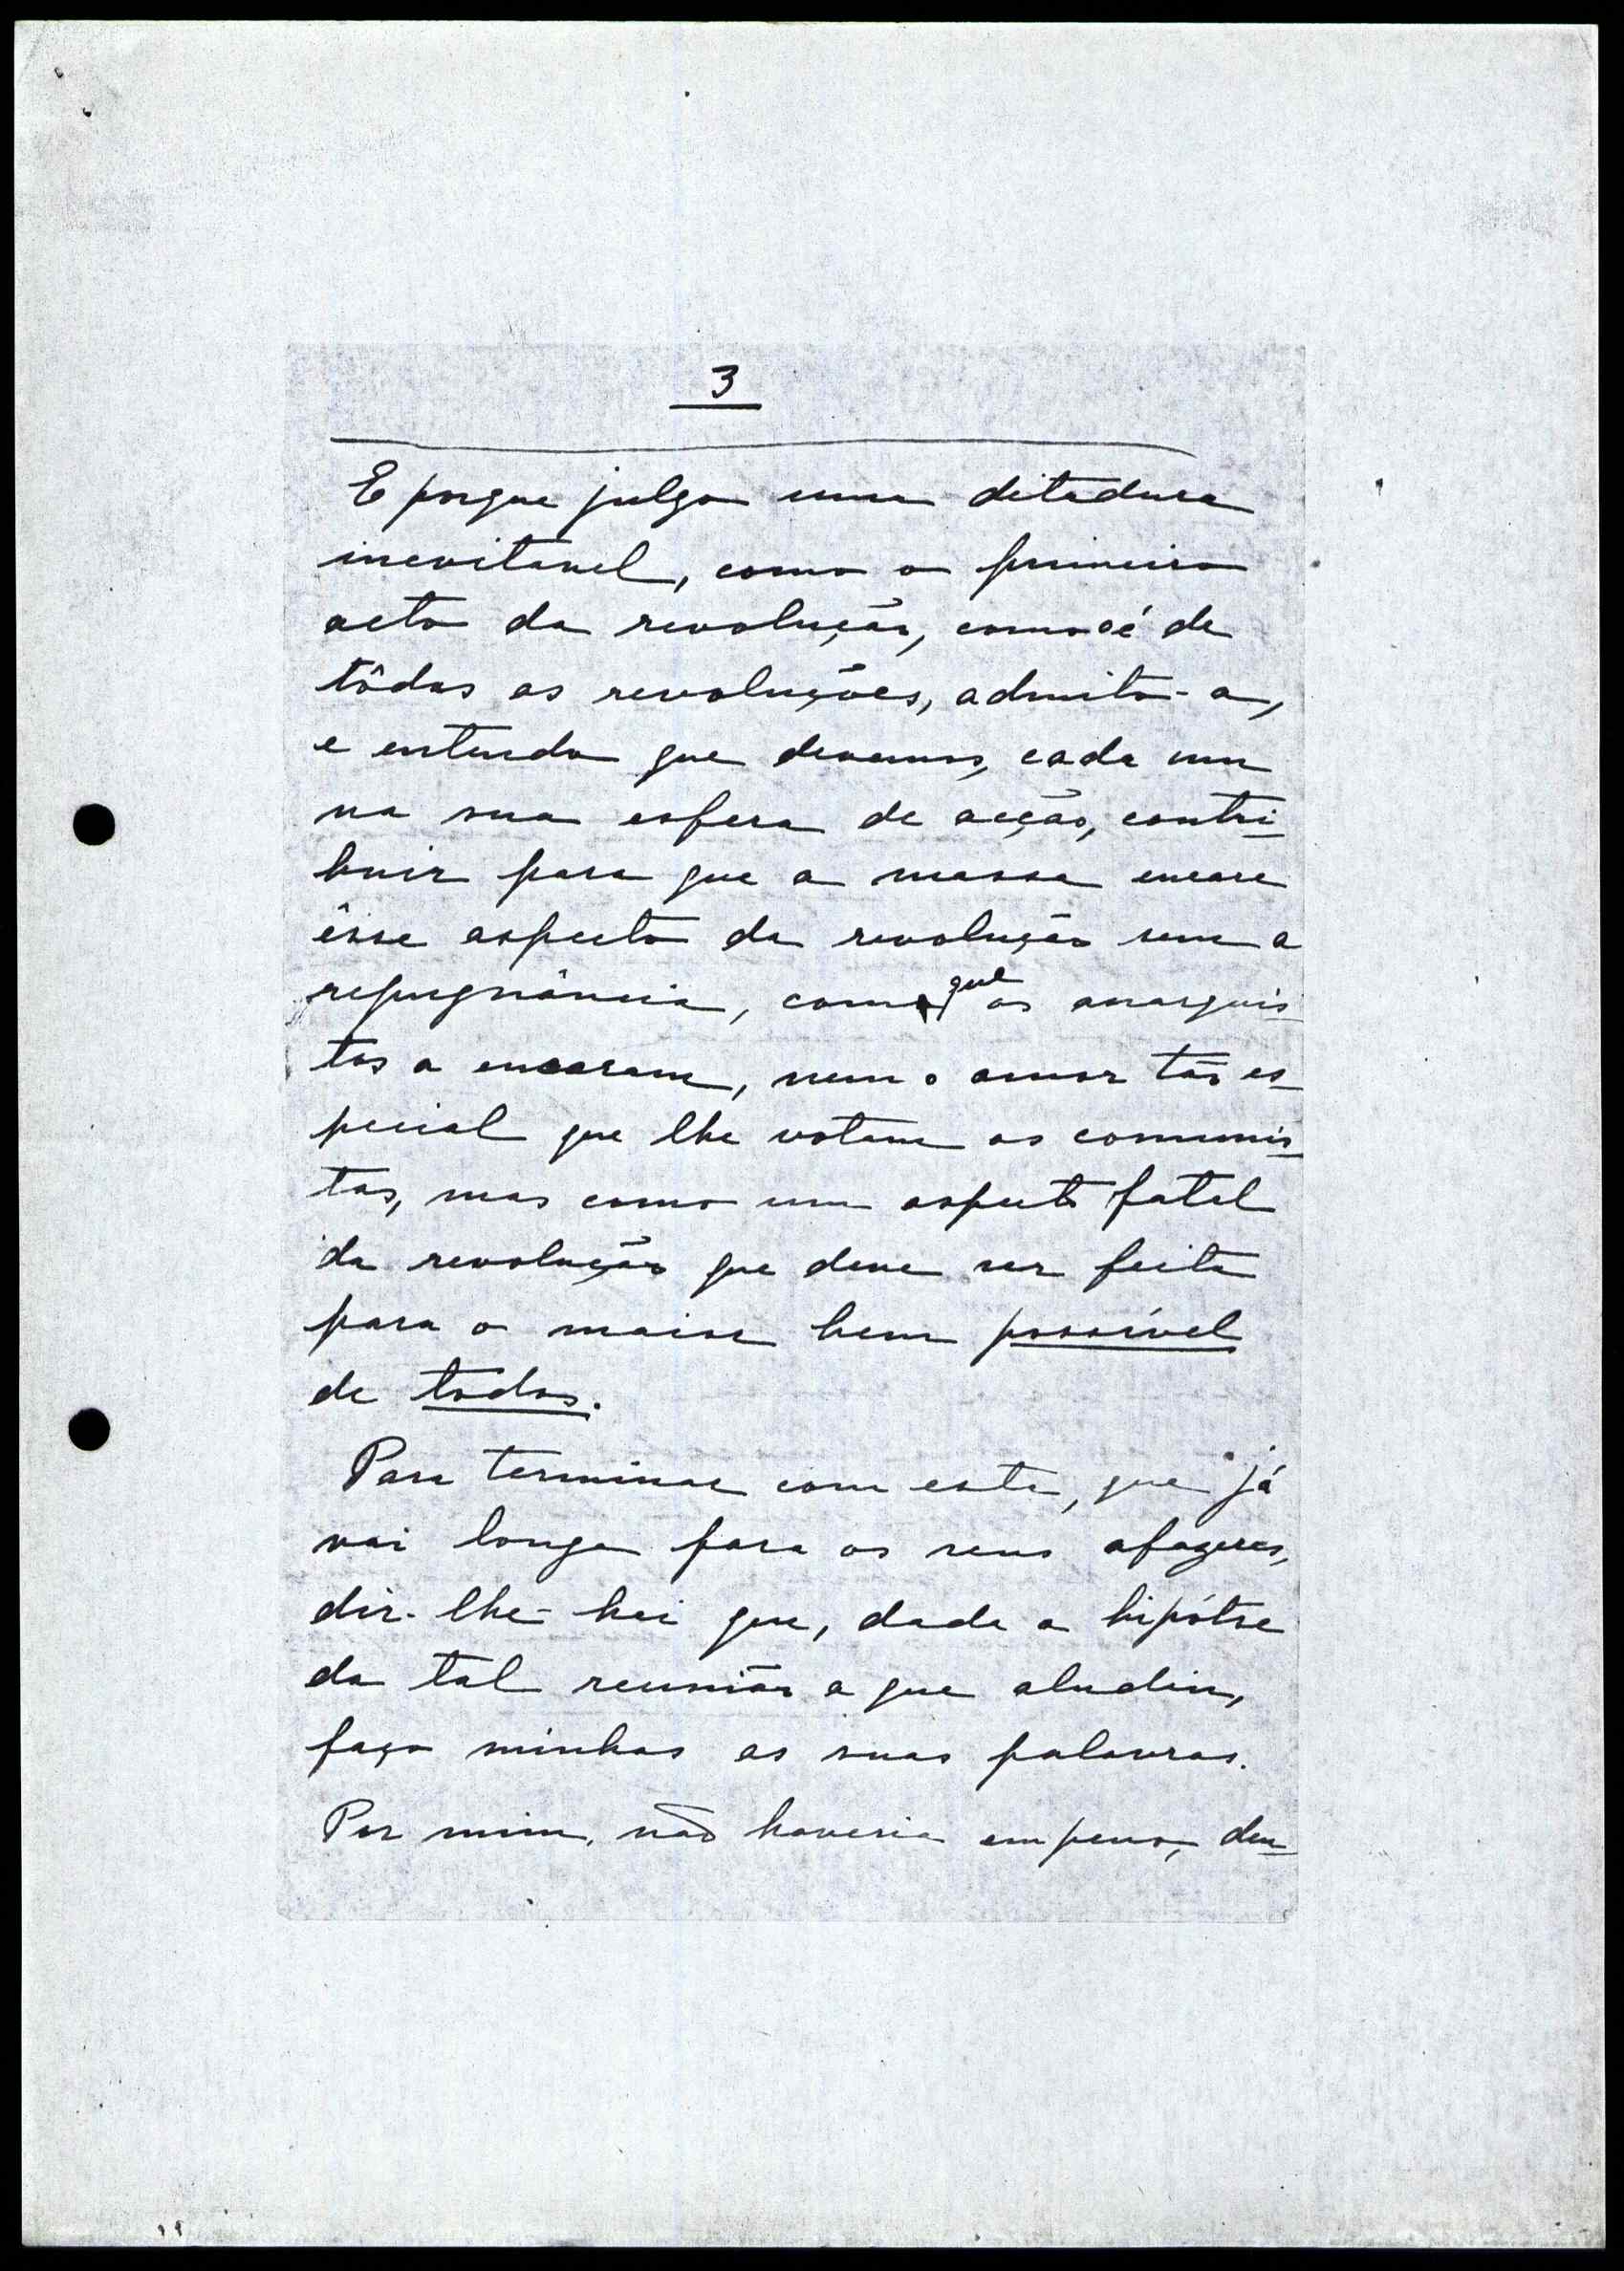 3
E porque julgo uma ditadura
inevitavel, como o primeiro
acto da revolução, como o é de
tôdas as revoluções, admito-a,
e entendo que devemos, cada um
na sua esfera de acção, contri-
buir para que a massa encare
êsse aspecto da revolução sem a
repugnância, com que os anarquis-
tas a encaram, nem o amor tão es-
pecial que lhe votam os comunis-
tas, mas como um aspecto fatal
da revolução que deve ser feita
para o maior bem possível
de todos.
Para terminar com esta, que já
vai longa para os seus afazeres,
dir-lhe-hei que, dada a hipótse
da tal reunião a que aludiu,
faço minhas as suas palavras.
Por mim, não haveria empeno, den-